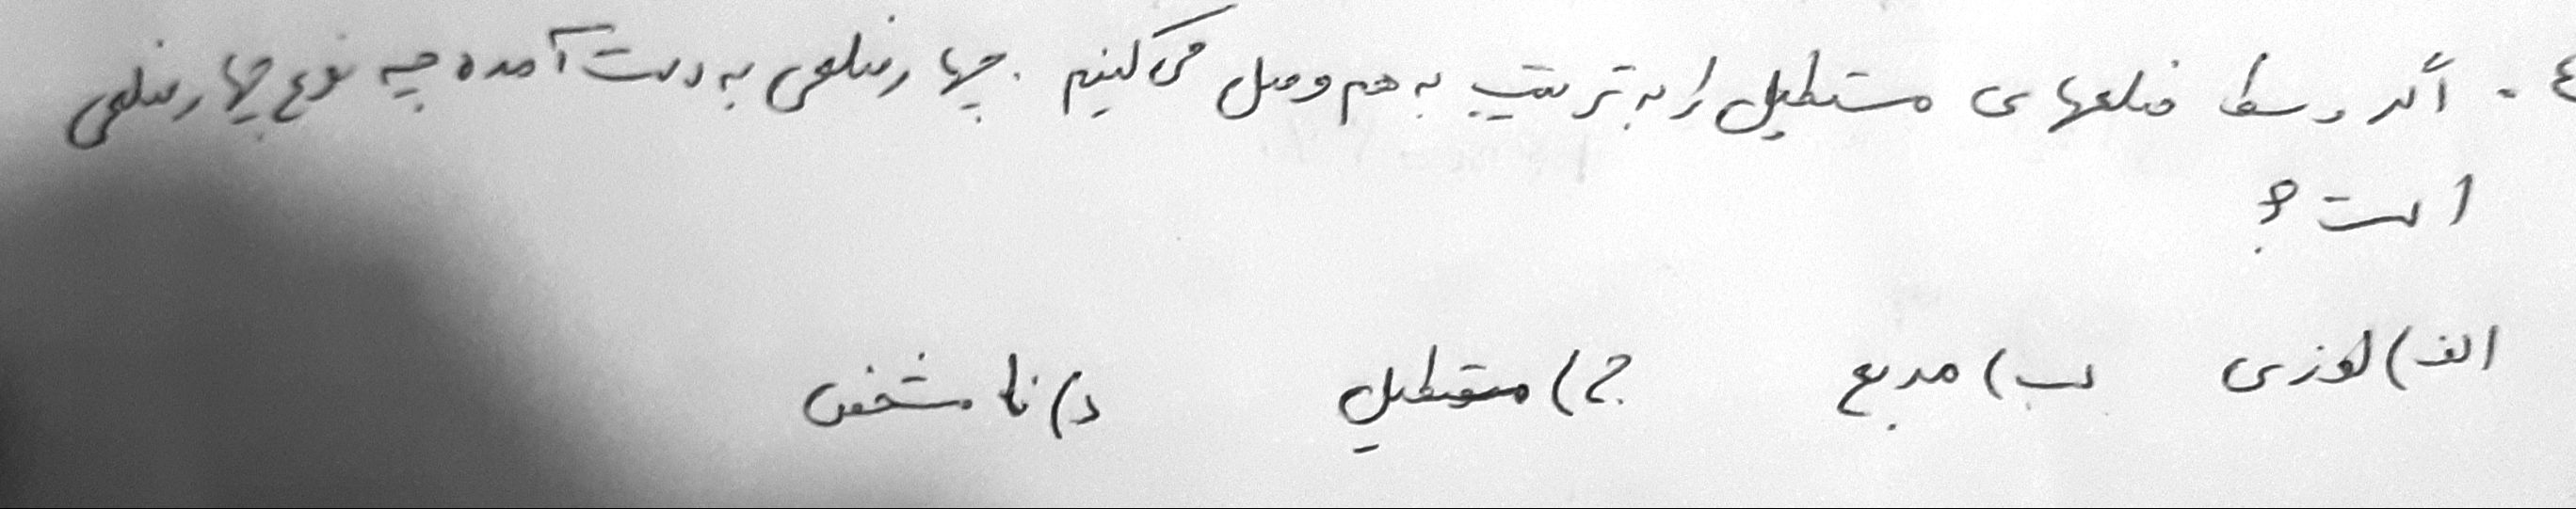 ٤ . اگر وسط ضلعهای مستطیل را به ترتیب به هم وصل می کنیم . چهارضلعی به دست آمده چه نوع چهارضلعی
است ؟
الف) لوزی ب) مربع ج) مستطیل د) نامشخص